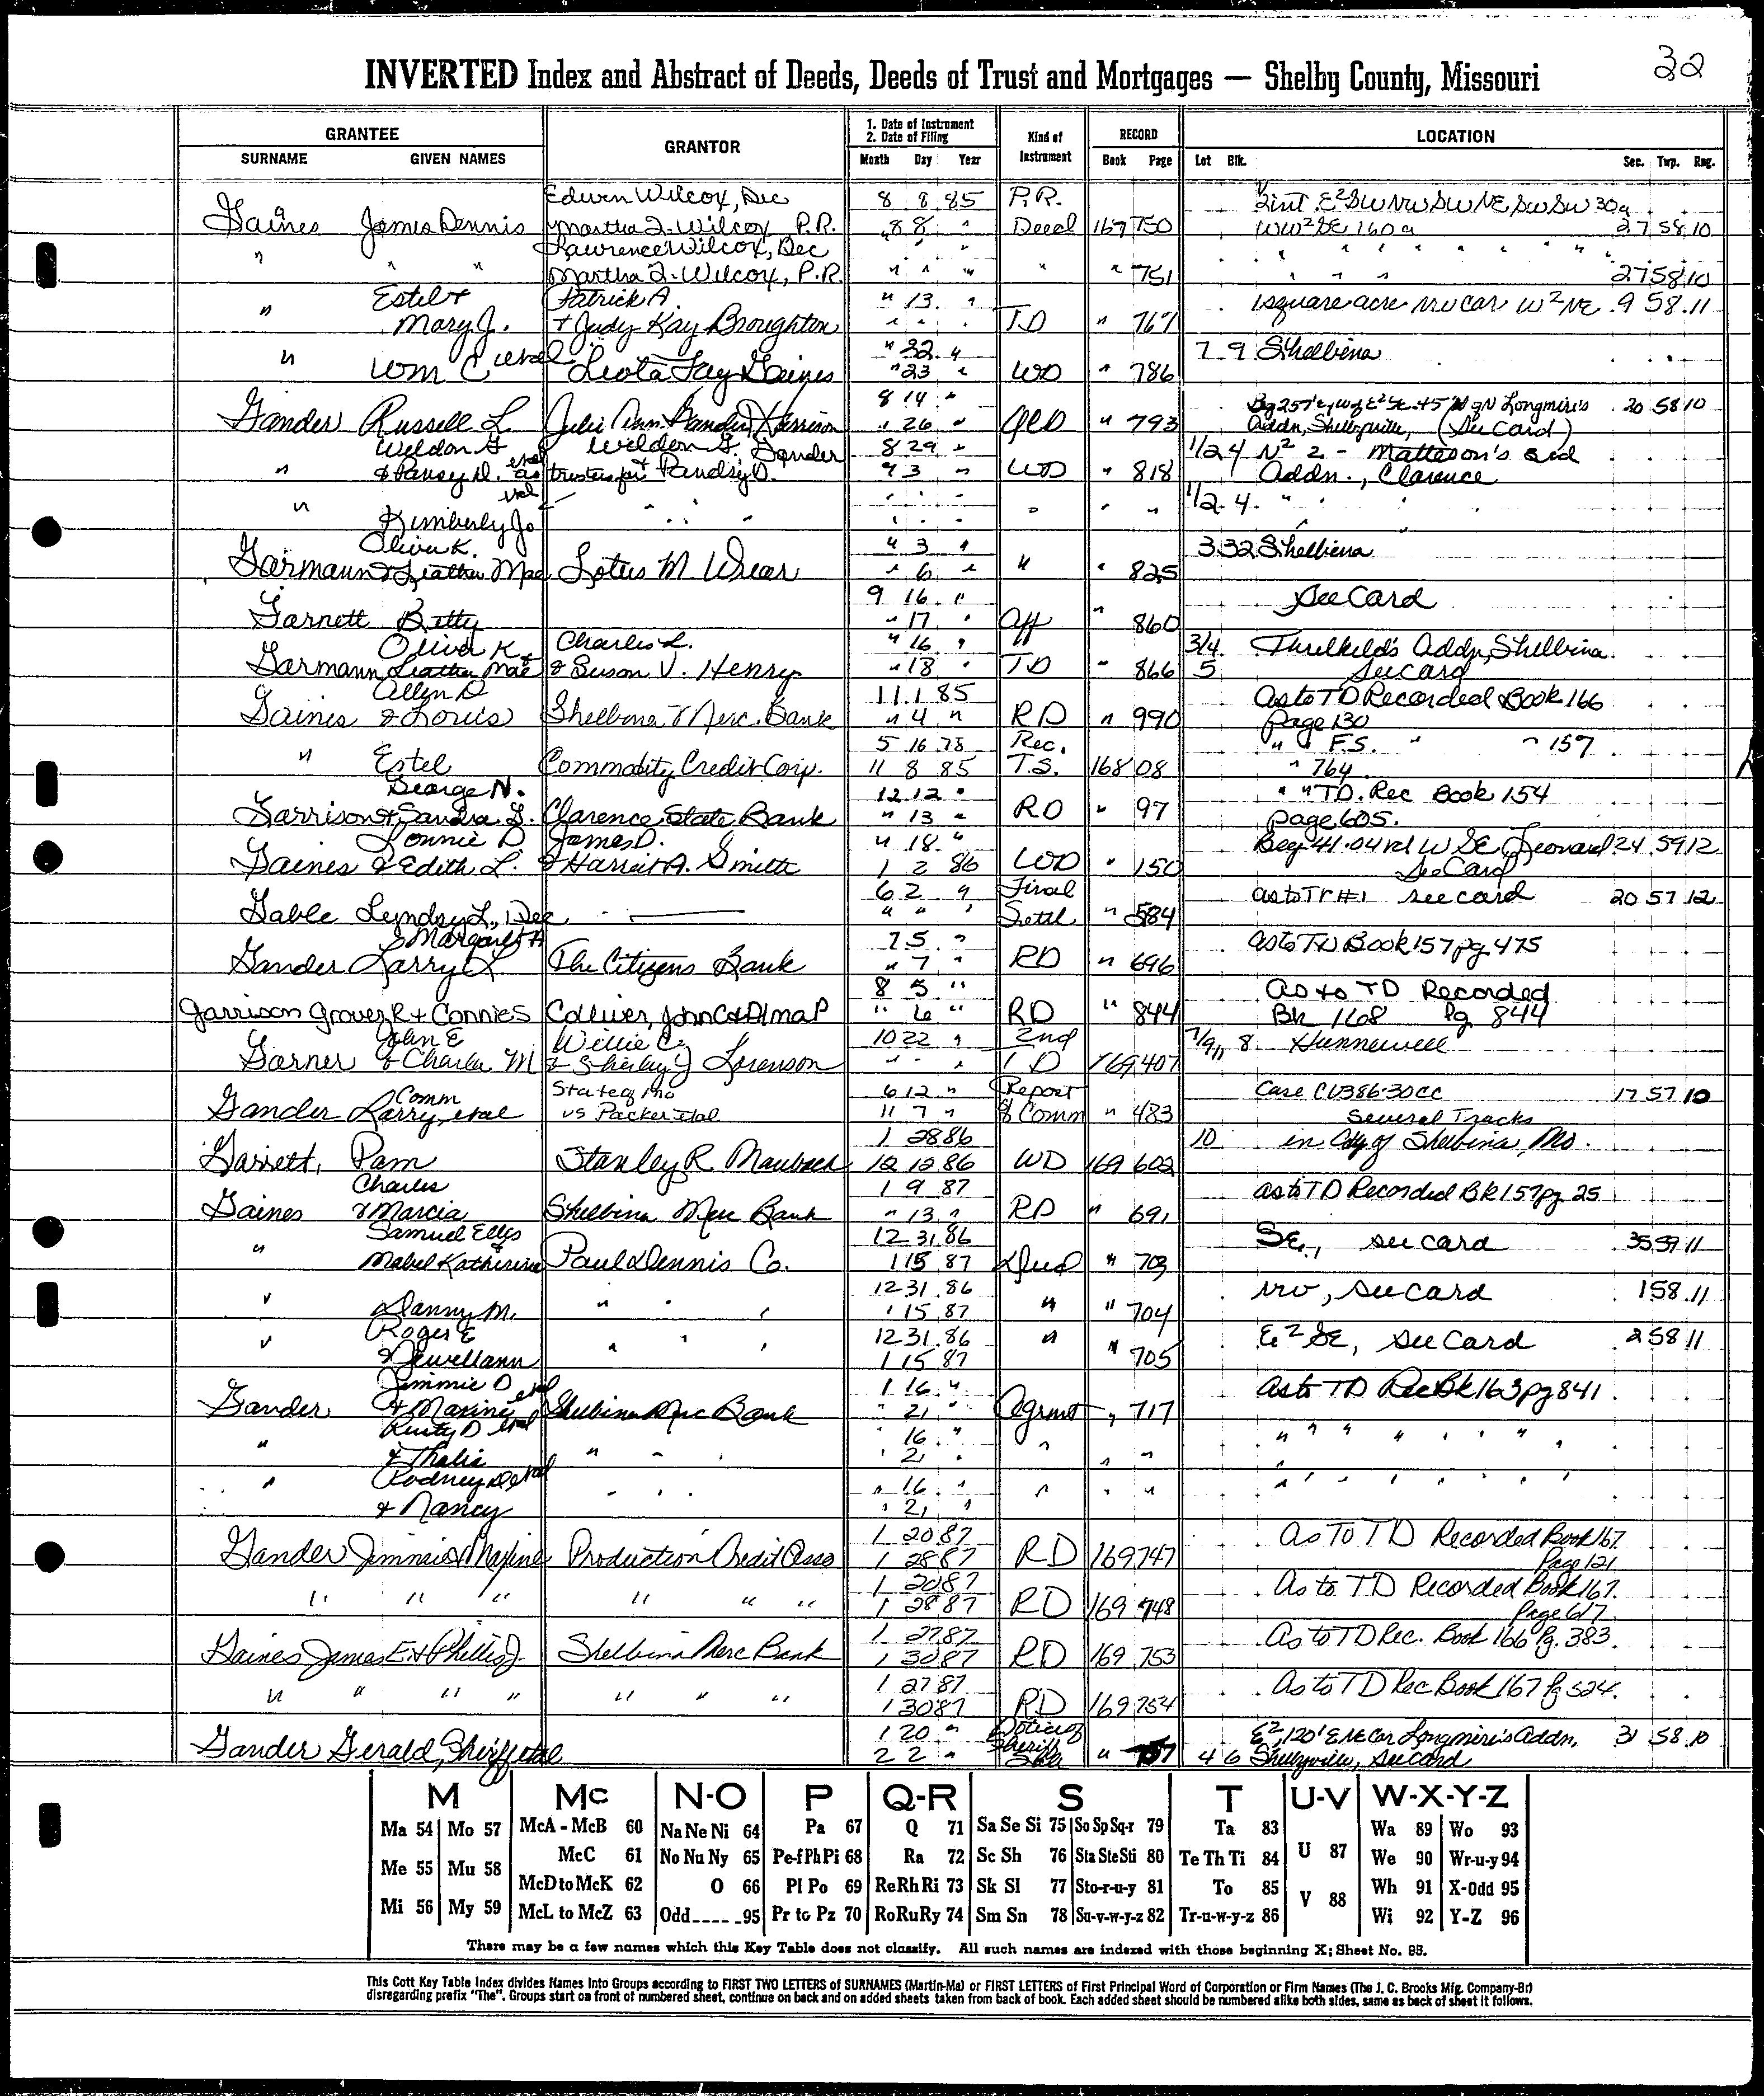 32
INVERTED Index and Abstract of Deeds, Deeds of Trust and Mortgages — Shelby County, Missouri
GRANTEE
SURNAME GIVEN NAMES
GRANTOR
1. Date of Instrument
2. Date of Filing
Month Day Year
Kind of Instrument
RECORD
Book Page
LOCATION
Lot Blk. Sec. Twp. Rng.
Edwin Wilcox, Dec 8 8 85 P.R. 1/2 int E²SW NW SW NE, SW SW 30a
Gaines James Dennis Martha I. Wilcox P.R. " 8 8 " Deed 167 750 W W² SE 160a 27 58 10
" Lawrence Wilcox, Dec " " " " " "
" " Martha I. Wilcox, P.R. " " " " " 751 " " " 27 58 10
Estel + Patrick A. " 13 " 1 square acre NW cor W² NE 9 58 11
" Mary J. + Judy Kay Broughton " " " TD " 767
" Wm C etal Leota Fay Gaines " 22 " 7 9 Shelbina
" 23 " WD " 786
8 14 " Bg 257' E, W of E² SE 45' N of N Longmire's 20 58 10
Gander Russell L. Julie Ann Gander Harrison " 26 " QCD " 793 Addn, Shelbyville, (See Card)
Weldon G etal Weldon G. Gander 8 29 " 1/2 4 N² 2 - Matteson's 2nd
" & Pansy D. as trustees for + Pandsy D. 9 3 " WD " 818 Addn., Clarence
" Kimberly Jo etal " " " " " " " " 1/2 4 " "
Oliver K. " 3 " 3 32 Shelbina
Garmann & Leatha Mae Lotus M. Wrear " 6 " " " 825
9 16 " See Card
Garnett Betty " 17 " Aff " 860
Oliver K + Charles L. " 16 " 3/4 Threlkeld's Addn, Shelbina
Garmann Leatha Mae & Susan V. Henry " 18 " TD " 866 5 See Card
Allen D 11 1 85 As to TD Recorded Book 166
Gaines & Louis Shelbina Merc. Bank " 4 " RD " 990 Page 130
5 16 78 Rec. " " F.S. " " 157
" Estel Commodity Credit Corp. 11 8 85 T.S. 168 08 " 764
George N. 12 12 " " " TD. Rec Book 154
Garrison & Sandra L. Clarence State Bank " 13 " RD " 97 page 605.
Lonnie D James D. " 18 " Beg 41.04 rd W SE Leonard 24 59 12
Gaines & Edith L. & Harriet A. Smith 1 2 86 WD " 150 See Card
6 2 " Final as to Tr #1 see card 20 57 12
Gable Lyndsy L., Dec " " " Settl " 584
& Margaret A 7 5 " as to TD Book 157 pg 475
Gander Larry L The Citizens Bank " 7 " RD " 696
8 5 " As to TD Recorded
Garrison Grover R + Connie S Collier, John C & Alma P " 6 " RD " 844 Bk 168 Pg 844
John E Willie C 10 22 " 2nd 7/9/11 8 Hunnewell
Garner & Charla M & Shirley J Lorenson " " " TD 169 407
Comm State of Mo 6 12 " Report Case CV386-30CC 17 57 10
Gander Larry, etal vs Packer etal 11 7 " of Comm " 483 Several Tracks
1 28 86 10 in City of Shelbina, Mo.
Garrett, Pam Stanley R Maubach 12 12 86 WD 169 602
Charles 1 9 87 as to TD Recorded Bk 157 pg 25
Gaines & Marcia Shelbina Merc Bank " 13 " RD " 691
Samuel Ellis 12 31 86 SE, see card 35 59 11
" Mabel Katherine Paul & Dennis Co. 1 15 87 " 703
12 31 86 NW, see card 1 58 11
" Danny M. " " " 1 15 87 " " 704
Roger E 12 31 86 E² SE, see Card 2 58 11
" & Jewellann " " " 1 15 87 " " 705
Jimmie D etal 1 16 " As to TD Rec Bk 163 pg 841
Gander & Maxine Shelbina Merc Bank " 21 " Agrmt " 717
Rusty D etal " 16 " " " " " " " " "
" & Thalia " " " " 21 " " " "
Rodney D etal " 16 " " " " " " " " "
" & Nancy " " " " 21 " " " "
1 20 87 As To TD Recorded Book 167
Gander Jimmie & Maxine Production Credit Asso 1 28 87 RD 169 747 Page 121
1 20 87 As to TD Recorded Book 167
" " " " " " 1 28 87 RD 169 748 Page 617
1 27 87 As to TD Rec. Book 166 Pg. 383
Gaines James E. & Phillis J Shelbina Merc Bank 1 30 87 RD 169 753
1 27 87 As to TD Rec Book 167 Pg 524
" " " " " " " 1 30 87 RD 169 754
1 20 " Notice of E², 120' E NE Cor Longmire's Addn, 31 58 10
Gander Gerald, Sheriff etal 2 2 " Sheriff Sale " 4 6 Shelbyville, see card
M Mc N-O P Q-R S T U-V W-X-Y-Z
Ma 54 Mo 57 McA - McB 60 Na Ne Ni 64 Pa 67 Q 71 Sa Se Si 75 So Sp Sq-r 79 Ta 83 U 87 Wa 89 Wo 93
Me 55 Mu 58 McC 61 No Nu Ny 65 Pe-f Ph Pi 68 Ra 72 Sc Sh 76 Sta Ste Sti 80 Te Th Ti 84 We 90 Wr-u-y 94
McD to McK 62 O 66 Pl Po 69 Re Rh Ri 73 Sk Sl 77 Sto-r-u-y 81 To 85 V 88 Wh 91 X-Odd 95
Mi 56 My 59 McL to McZ 63 Odd_____95 Pr to Pz 70 Ro Ru Ry 74 Sm Sn 78 Su-v-w-y-z 82 Tr-u-w-y-z 86 Wi 92 Y-Z 96
There may be a few names which this Key Table does not classify. All such names are indexed with those beginning X; Sheet No. 95.
This Cott Key Table Index divides Names Into Groups according to FIRST TWO LETTERS of SURNAMES (Martin-Ma) or FIRST LETTERS of First Principal Word of Corporation or Firm Names (The J. C. Brooks Mfg. Company-Br)
disregarding prefix "The". Groups start on front of numbered sheet, continue on back and on added sheets taken from back of book. Each added sheet should be numbered alike both sides, same as back of sheet it follows.